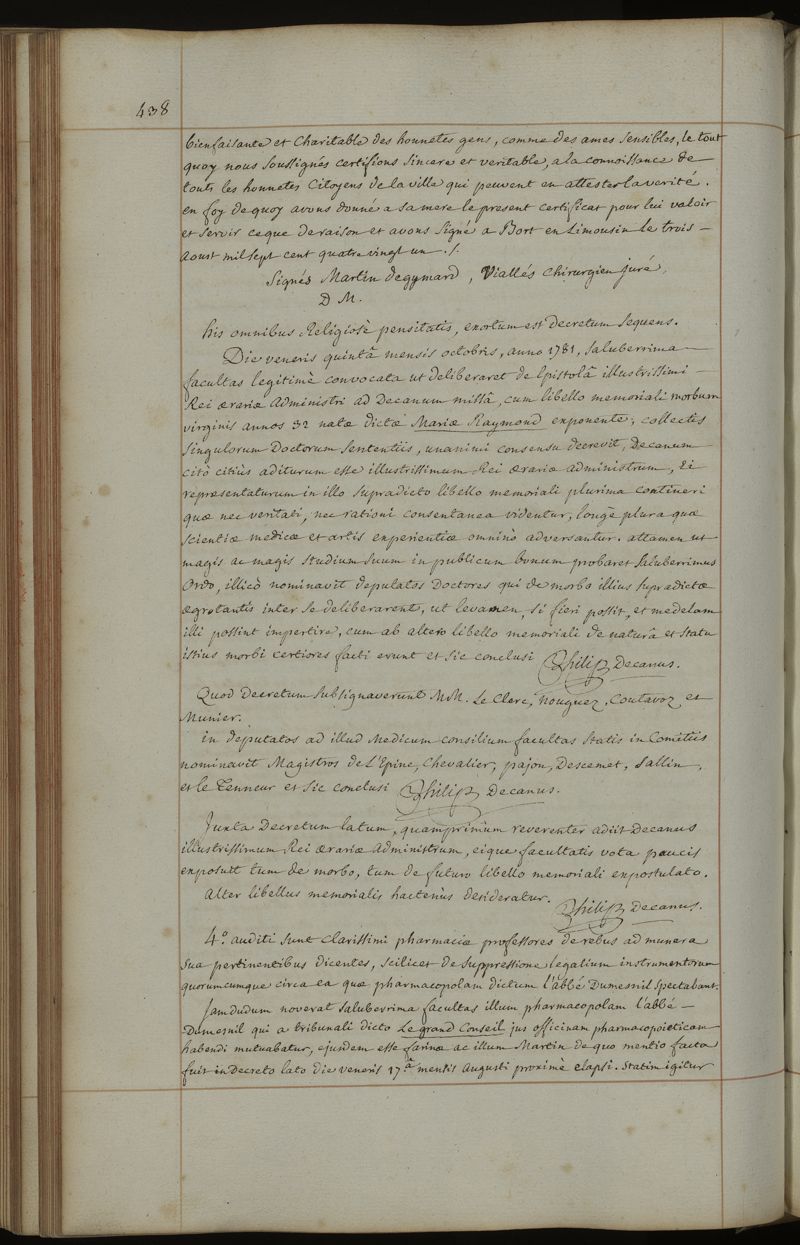 438
bienfaisante et Charitable des honnetes gens, comme des ames sensibles, le tout
quoy nous soussignés certifions sincere et veritable, a la connoissance de
touts les honnetes Citoyens de la ville qui peuvent en attester la verité.
en foy de quoy avons donné a sa mere le present certificat pour lui valoir
et servir ce que de raison et avons signé a Bort en Limousin le trois
Aoust mil sept cent quatre vingt un ./.
Signés Martin degymard, Viallés chirurgien juré,
D M.
his omnibus Religiosè pensitatis, exortum est decretum sequens.
Die veneris quintâ mensis octobris, anno 1781, saluberrima
facultas legitimè convocata ut deliberaret de Epistolâ illustrissimi
Rei ærariæ Administri ad Decanum missâ, cum libello memoriali morbum
virginis annos 32 natæ dictæ Mariæ Raymond exponente, collectis
singulorum Doctorum sententiis, unanimi consensu decrevit, Decanum
citò citiùs aditurum esse illustrissimum Rei ærariæ administrum, Ei
repræsentaturum in illo supradicto libello memoriali plurima contineri
quæ nec veritati, nec rationi consentanea videntur, longè plura quæ
scientiæ medicæ et artis experientiæ omninò adversantur. attamen ut
magis ac magis studium suum in publicum bonum probaret saluberrimus
Ordo, illicò nominavit deputatos Doctores qui de morbo illius supradictæ
ægrotantis inter se deliberarent, ut levamen, si fieri possit, et medelam
illi possint impertire, cum ab altero libello memoriali de naturâ et statu
istius morbi certiores facti erunt et sic conclusi Philip Decanus.
Quod Decretum subsignaverunt MM. Le Clerc, Nouguez, Coutavoz et
Munier.
in deputatos ad illud Medicum consilium facultas statis in Comitiis
nominavit Magistros de L'Epine, Chevalier, pajon, Descemet, Sallin,
et le Tenneur et sic conclusi Philip Decanus.
Juxta Decretum latum, quamprimùm reverenter adiit Decanus
illustrissimum Rei ærariæ Administrum, eique facultatis vota paucis
exposuit tum de morbo, tum de futuro libello memoriali expostulato.
Alter libellus memorialis hactenùs desideratur.
Philip Decanus.
4.º auditi sunt clarissimi pharmaciæ professores de rebus ad munera
sua pertinentibus dicentes, scilicet de suppressione legalium instrumentorum
quorumcumque circa ea quæ pharmacopolam dictum l'abbé Dumesnil spectabant.
Jamdudum noverat saluberrima facultas illum pharmacopolam l'abbé
Dumesnil qui a tribunali dicto Le grand Conseil jus officinam pharmacopoieticam
habendi mutuabatur, ejusdem esse farinæ ac illum Martin de quo mentio facta
fuit in Decreto lato die veneris 17.â mensis Augusti proximè elapsi. Statim igitur